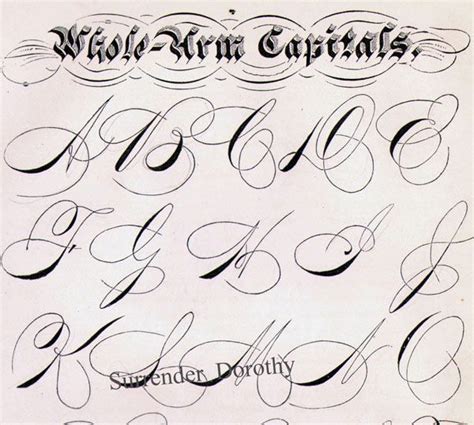 Whole-Arm Capitals.
A B C D E
F G H I J
K L M N O
Surrender, Dorothy